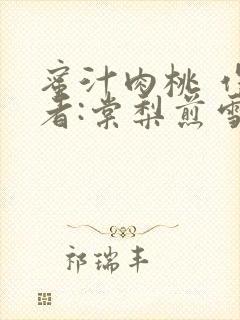 蜜汁肉桃 作
者:棠梨煎雪
祁瑞丰